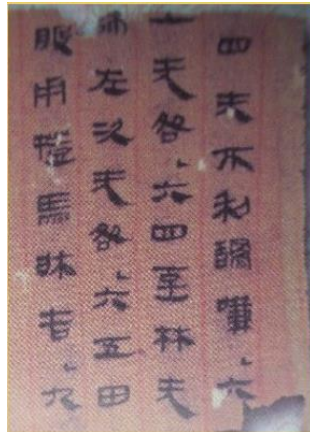 四无不利譌嗛六
之无咎六四至林无
師左次无咎六五田
服用撜馬牀吉九